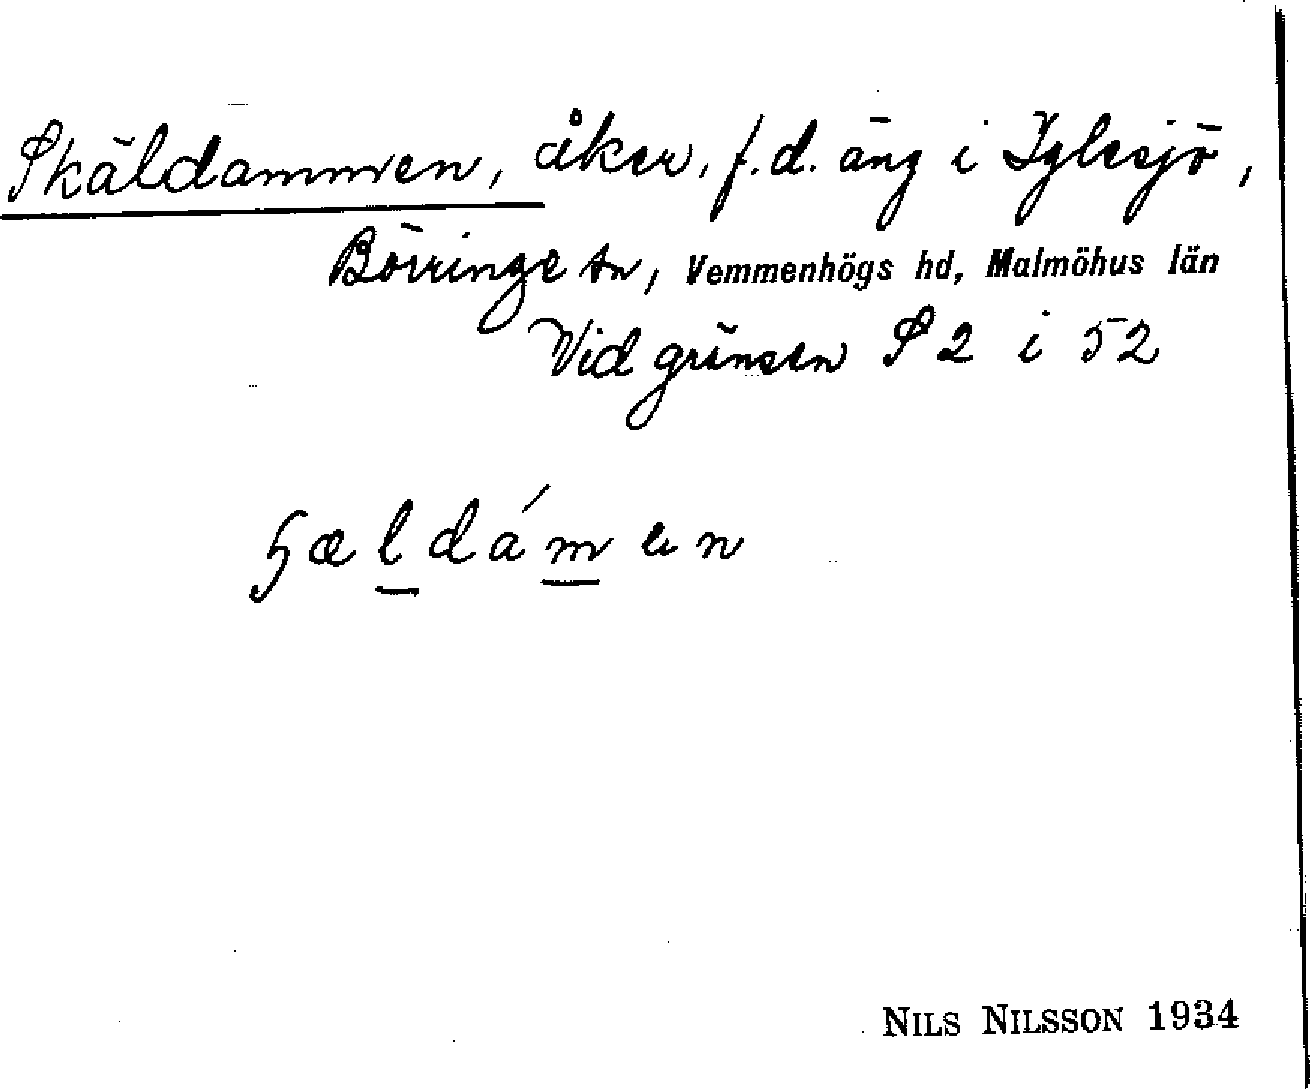 Skäldammen, åker, f.d. äng i Iglesjö,
Börringe sn, Vemmenhögs hd, Malmöhus län
Vid gränsen S 2 i 52
ɧældámen
NILS NILSSON 1934